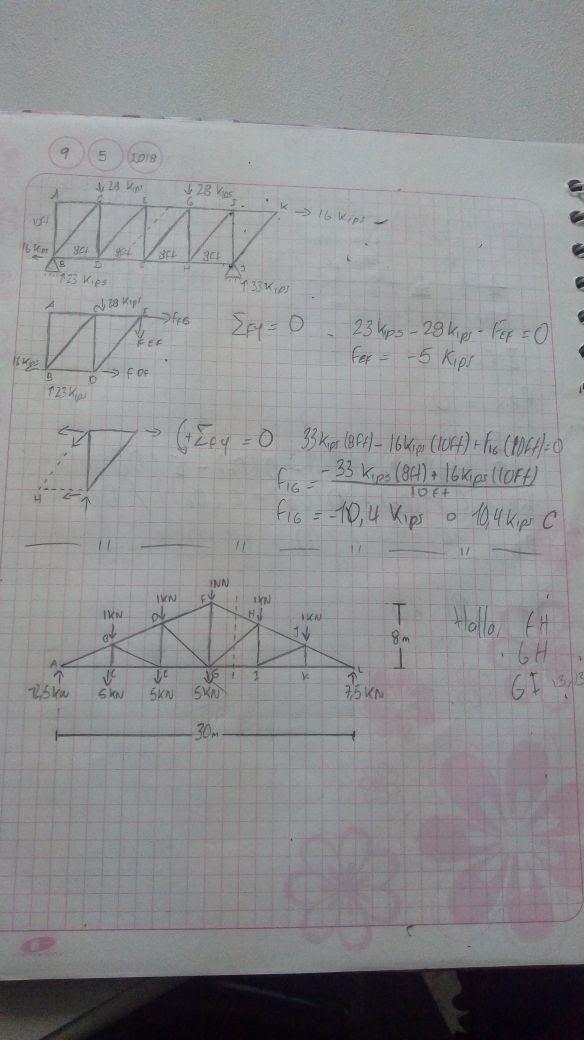 9 5 2018
28 Kips 28 Kips
A C E G I K → 16 Kips
16 Kips
B 8ft D 8ft H 8ft J
↑23 Kips ↑33 Kips
↓28 Kips
A E → FEG
↓ FEF
16Kips B D → FDF
↑23 Kips
ΣFy = 0 23 Kips - 28 Kips - FEF = 0
FEF = -5 Kips
H
(+ΣFy = 0 33 Kips (8ft) - 16 Kips (10ft) + FIG (10ft) = 0
FIG = -33 Kips (8ft) + 16 Kips (10ft)
10ft
FIG = -10,4 Kips o 10,4 Kips C
1KN 1KN 1KN 1KN 1KN
A B D F H J L
C E G I K
12,5KN 5KN 5KN 5KN 7,5KN
30m
8m
Hallo, FH
GH
GI